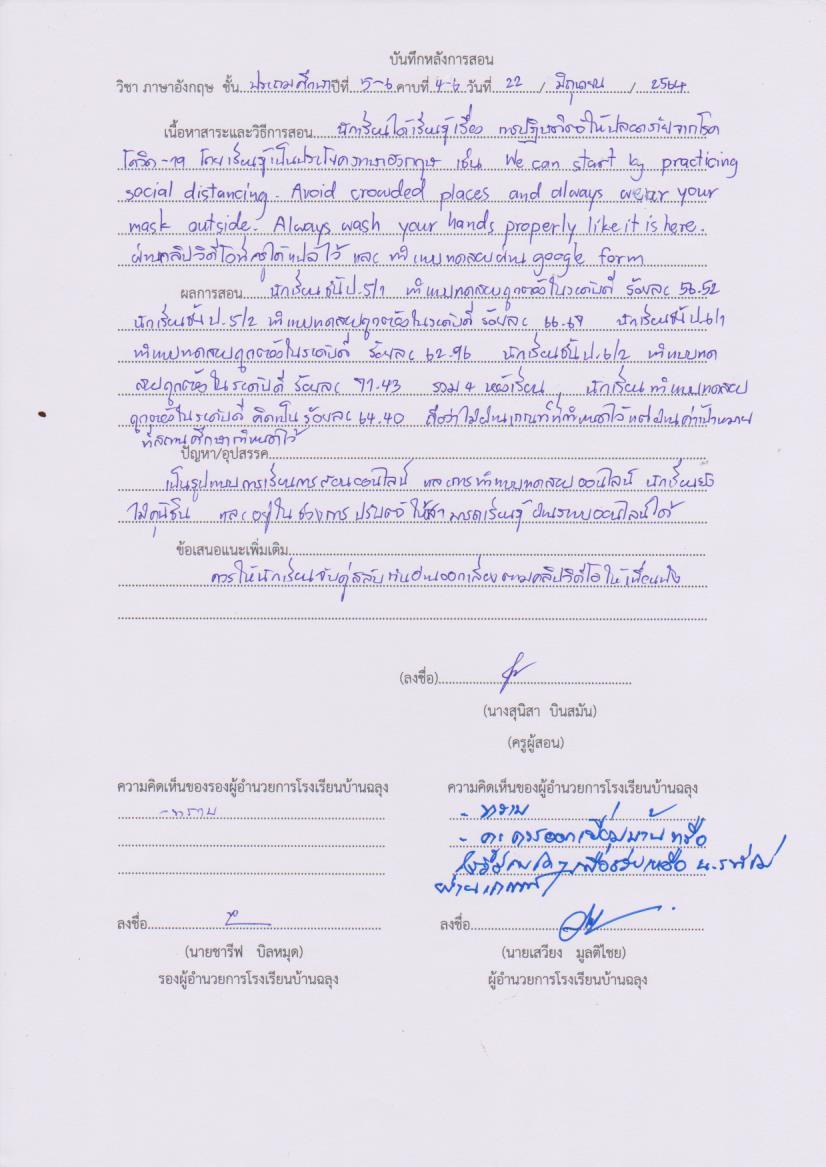 บันทึกหลังการสอน
วิชา ภาษาอังกฤษ ชั้น ประถมศึกษาปีที่ 5-6 คาบที่ 4-6 วันที่ 22 / มิถุนายน / 2564
เนื้อหาสาระและวิธีการสอน นักเรียนได้เรียนรู้เรื่อง การปฏิบัติตัวให้ปลอดภัยจากโรค
โควิด-19 โดยเรียนรู้เป็นประโยคภาษาอังกฤษ เช่น We can start by practicing
social distancing. Avoid crowded places and always wear your
mask outside. Always wash your hands properly like it is here.
ผ่านคลิปวิดีโอที่ครูได้แปลไว้ และ ทำแบบทดสอบผ่าน google form
ผลการสอน นักเรียนชั้น ป.5/1 ทำแบบทดสอบถูกต้องในระดับดี ร้อยละ 56.52
นักเรียนชั้น ป.5/2 ทำแบบทดสอบถูกต้องในระดับดี ร้อยละ 66.67 นักเรียนชั้น ป.6/1
ทำแบบทดสอบถูกต้องในระดับดี ร้อยละ 62.96 นักเรียนชั้น ป.6/2 ทำแบบทด
สอบถูกต้องในระดับดี ร้อยละ 71.43 รวม 4 ห้องเรียน นักเรียนทำแบบทดสอบ
ถูกต้องในระดับดี คิดเป็นร้อยละ 64.40 ถือว่าไม่ผ่านเกณฑ์ที่กำหนดไว้ แต่ผ่านค่าเป้าหมาย
ที่สถานศึกษากำหนดไว้
ปัญหา/อุปสรรค
เป็นรูปแบบการเรียนการสอนออนไลน์ และการทำแบบทดสอบออนไลน์ นักเรียนยัง
ไม่คุ้นชิน และอยู่ในช่วงการปรับตัวให้สามารถเรียนรู้ผ่านระบบออนไลน์ได้
ข้อเสนอแนะเพิ่มเติม
ควรให้นักเรียนจับคู่สลับกันอ่านออกเสียงตามคลิปวิดีโอให้เพื่อนฟัง
(ลงชื่อ)
(นางสุนิสา บินสมัน)
(ครูผู้สอน)
ความคิดเห็นของรองผู้อำนวยการโรงเรียนบ้านฉลุง
- ทราบ
ลงชื่อ
(นายชารีฟ บิลหมุด)
รองผู้อำนวยการโรงเรียนบ้านฉลุง
ความคิดเห็นของผู้อำนวยการโรงเรียนบ้านฉลุง
- ทราบ
- ควรออกเยี่ยมบ้าน หรือ
เพื่อช่วยเหลือ น.ร ที่ไม่
ผ่านเกณฑ์
ลงชื่อ
(นายเสวียง มูลติไชย)
ผู้อำนวยการโรงเรียนบ้านฉลุง